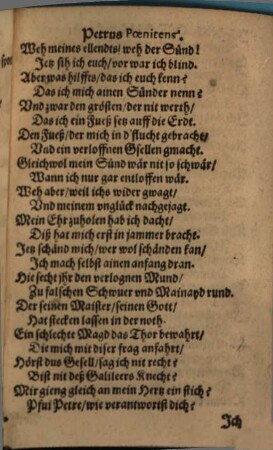 Petrus Pœnitens.
Weh meines ellendts/ weh der Sünd!
Jetz sih ich euch/ vor war ich blind.
Aber was hilffts/ das ich euch kenn?
Das ich mich ainen Sünder nenn?
Vnd zwar den grösten/ der nit werth/
Das ich ein Fueß setz auff die Erdt.
Den Fueß/ der mich in d'flucht gebracht/
Vnd ein verloffnen Gsellen gmacht.
Gleichwol mein Sünd wär nit so schwär/
Wann ich nur gar entloffen wär.
Weh aber/ weil ichs wider gwagt/
Vnd meinem vnglück nachgejagt.
Mein Ehr zuholen hab ich dacht/
Diß hat mich erst in jammer bracht.
Jetz schänd mich/ wer wol schänden kan/
Ich mach selbst ainen anfang dran.
Hie secht jhr den verlognen Mund/
Zu falschen Schwuer vnd Mainayd rund.
Der seinen Maister/ seinen Gott/
Hat stecken lassen in der noth.
Ein schlechte Magd das Thor bewahrt/
Die mich mit diser frag anfahrt/
Hörst dus Gesell/ sag ich nit recht?
Bist nit deß Galileers Knecht?
Mir gieng gleich an mein Hertz ein stich?
Pfui Petre/ wie verantwortst dich?
Ich